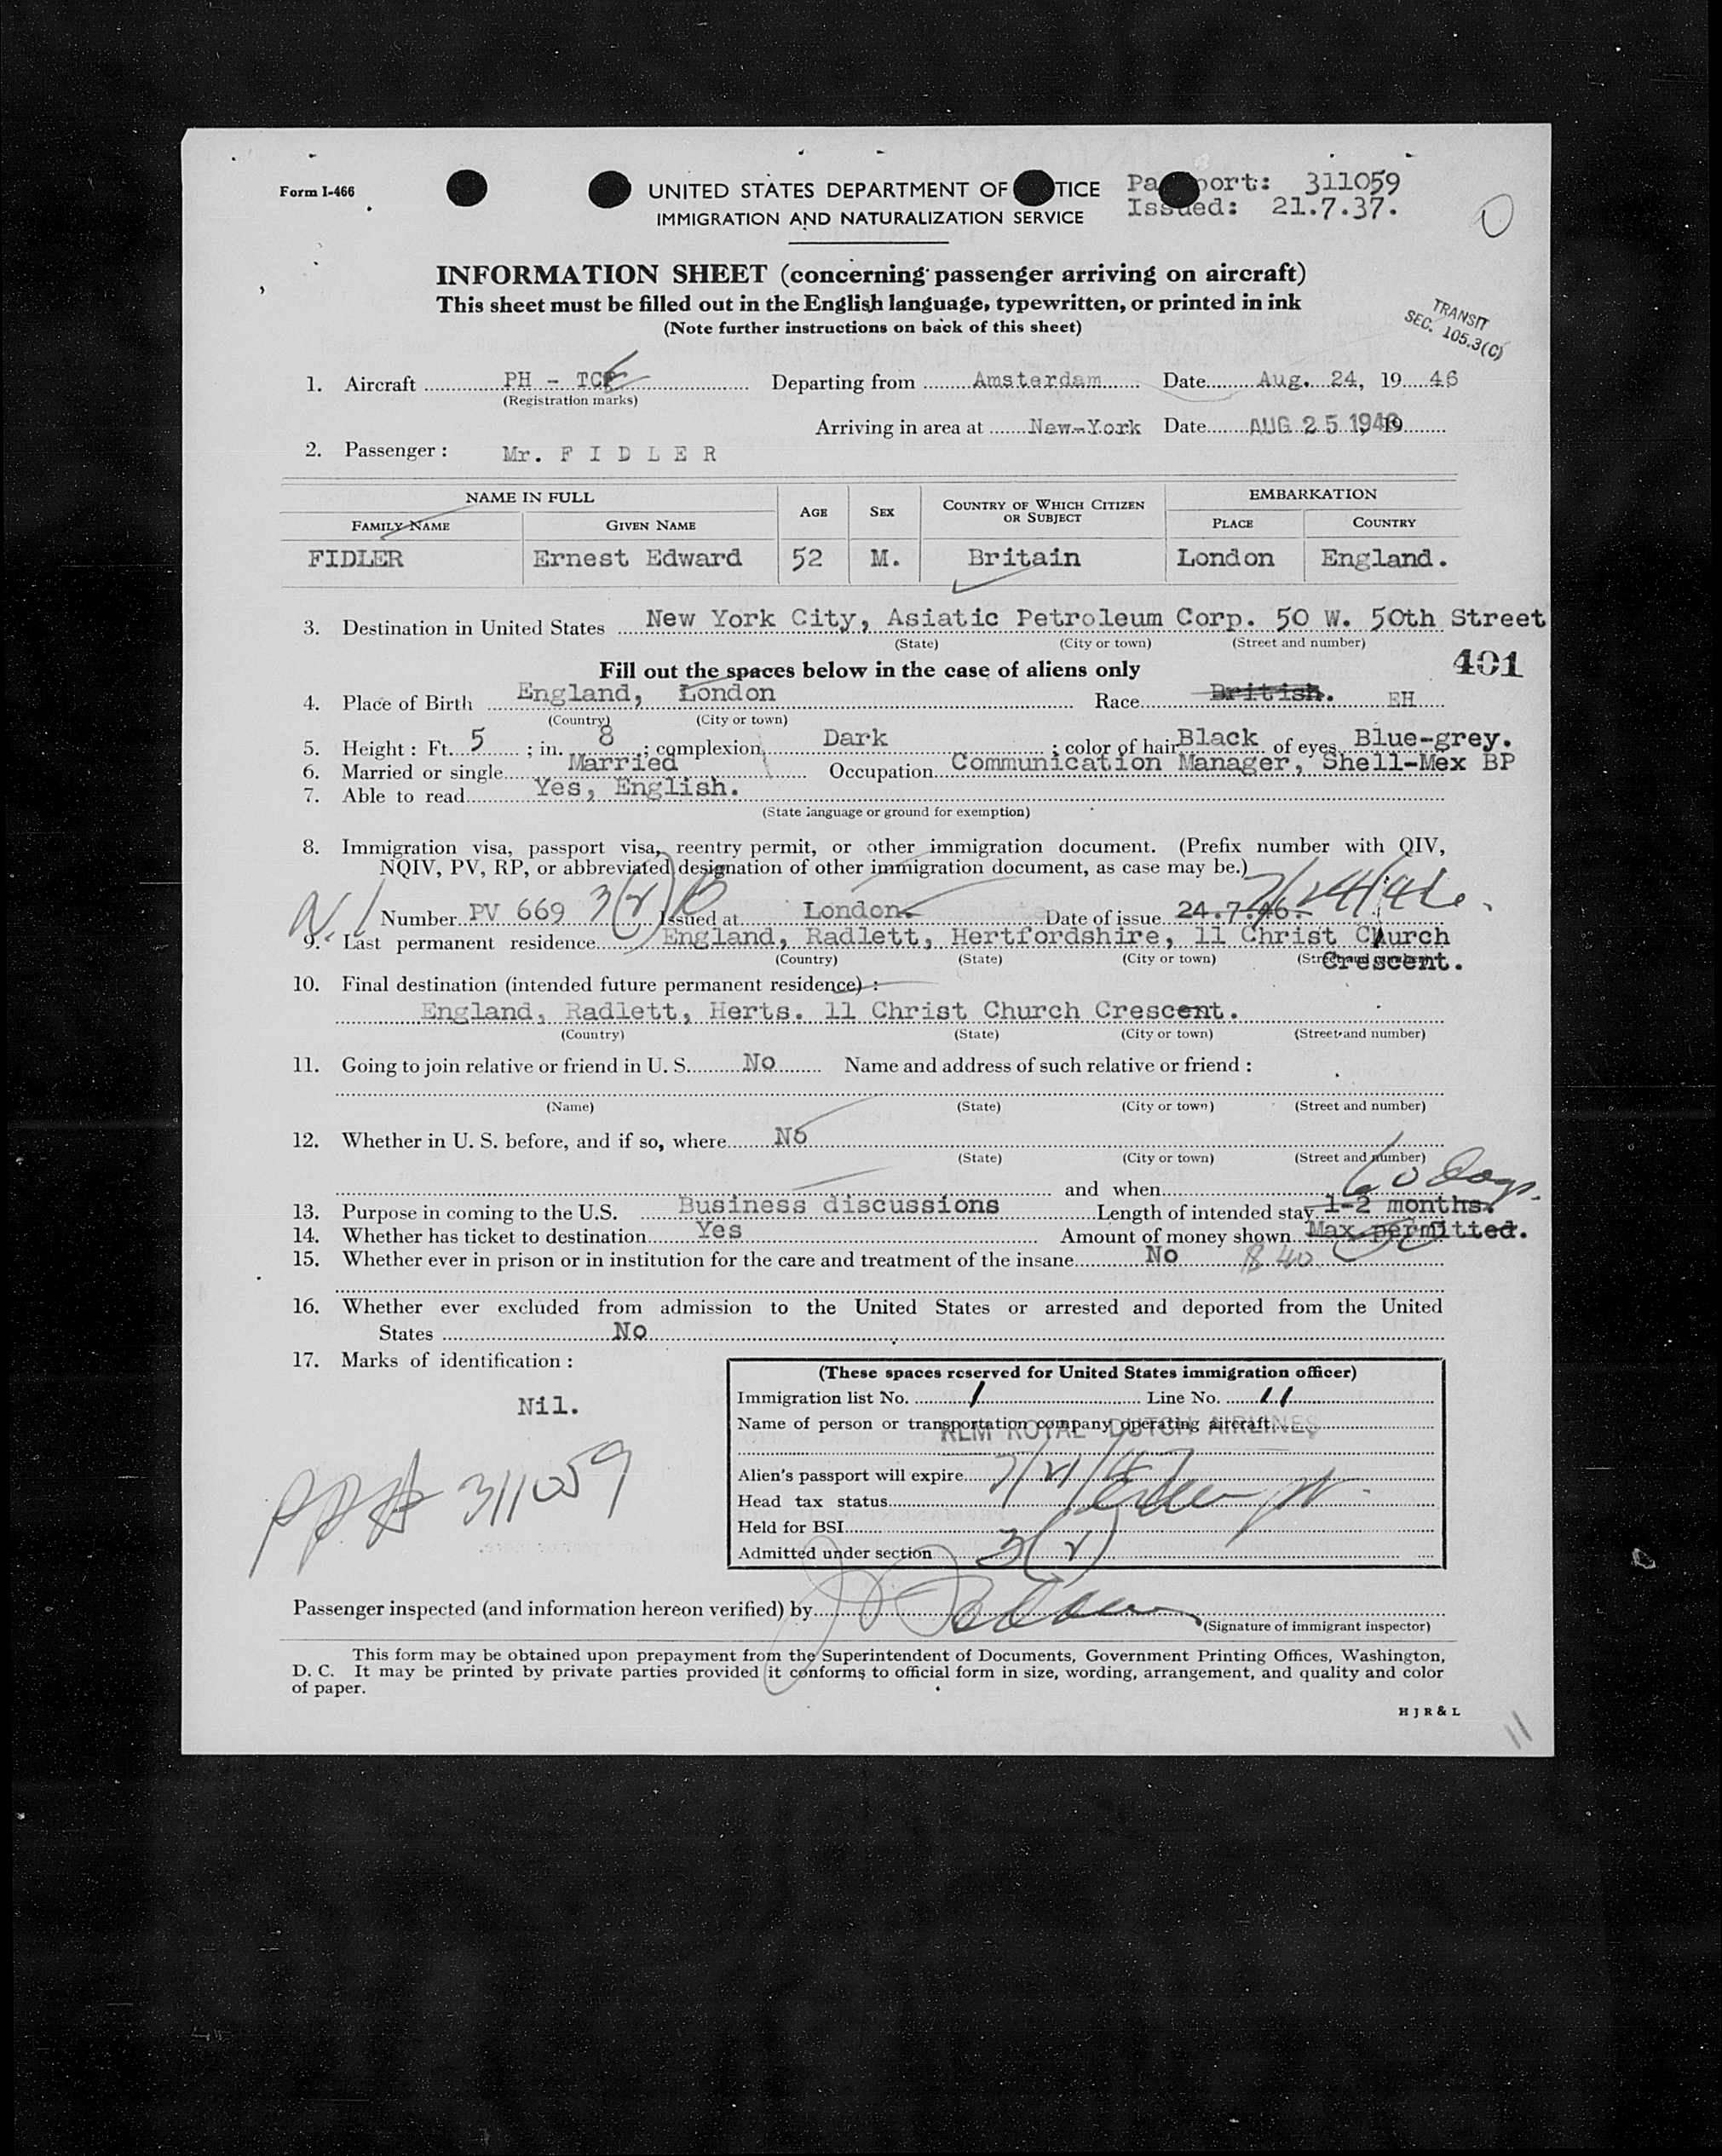 Form I-466
UNITED STATES DEPARTMENT OF TICE
IMMIGRATION AND NATURALIZATION SERVICE
Pa port: 311059
Issued: 21.7.37.
INFORMATION SHEET (concerning passenger arriving on aircraft)
This sheet must be filled out in the English language, typewritten, or printed in ink
(Note further instructions on back of this sheet)
TRANSIT
SEC. 105.3(C)
1. Aircraft PH - TCE Departing from Amsterdam Date Aug. 24, 19 46
(Registration marks)
Arriving in area at New-York Date AUG 25 1946 19
2. Passenger : Mr. F I D L E R
NAME IN FULL AGE SEX COUNTRY OF WHICH CITIZEN OR SUBJECT EMBARKATION
FAMILY NAME GIVEN NAME PLACE COUNTRY
FIDLER Ernest Edward 52 M. Britain London England.
3. Destination in United States New York City, Asiatic Petroleum Corp. 50 W. 50th Street
(State) (City or town) (Street and number)
Fill out the spaces below in the case of aliens only 401
4. Place of Birth England, London Race British. EH
(Country) (City or town)
5. Height : Ft. 5 ; in. 8 ; complexion Dark ; color of hair Black of eyes Blue-grey.
6. Married or single Married Occupation Communication Manager, Shell-Mex BP
7. Able to read Yes, English.
(State language or ground for exemption)
8. Immigration visa, passport visa, reentry permit, or other immigration document. (Prefix number with QIV,
NQIV, PV, RP, or abbreviated designation of other immigration document, as case may be.)
Number PV 669 3(2) Issued at London. Date of issue 24.7.46. 7/24/46.
9. Last permanent residence England, Radlett, Hertfordshire, 11 Christ Church
(Country) (State) (City or town) (Street and number)
Crescent.
10. Final destination (intended future permanent residence) :
England, Radlett, Herts. 11 Christ Church Crescent.
(Country) (State) (City or town) (Street and number)
11. Going to join relative or friend in U. S. No Name and address of such relative or friend :
(Name) (State) (City or town) (Street and number)
12. Whether in U. S. before, and if so, where No
(State) (City or town) (Street and number)
and when 60 Days.
13. Purpose in coming to the U.S. Business discussions Length of intended stay 1-2 months.
14. Whether has ticket to destination Yes Amount of money shown Max permitted.
15. Whether ever in prison or in institution for the care and treatment of the insane No $ 40
16. Whether ever excluded from admission to the United States or arrested and deported from the United
States No
17. Marks of identification :
Nil.
PP# 311059
(These spaces reserved for United States immigration officer)
Immigration list No. 1 Line No. 11
Name of person or transportation company operating aircraft
KLM ROYAL DUTCH AIRLINES
Alien's passport will expire 7/21/47
Head tax status
Held for BSI
Admitted under section 3(2)
Passenger inspected (and information hereon verified) by
(Signature of immigrant inspector)
This form may be obtained upon prepayment from the Superintendent of Documents, Government Printing Offices, Washington,
D. C. It may be printed by private parties provided it conforms to official form in size, wording, arrangement, and quality and color
of paper.
H J R & L
11